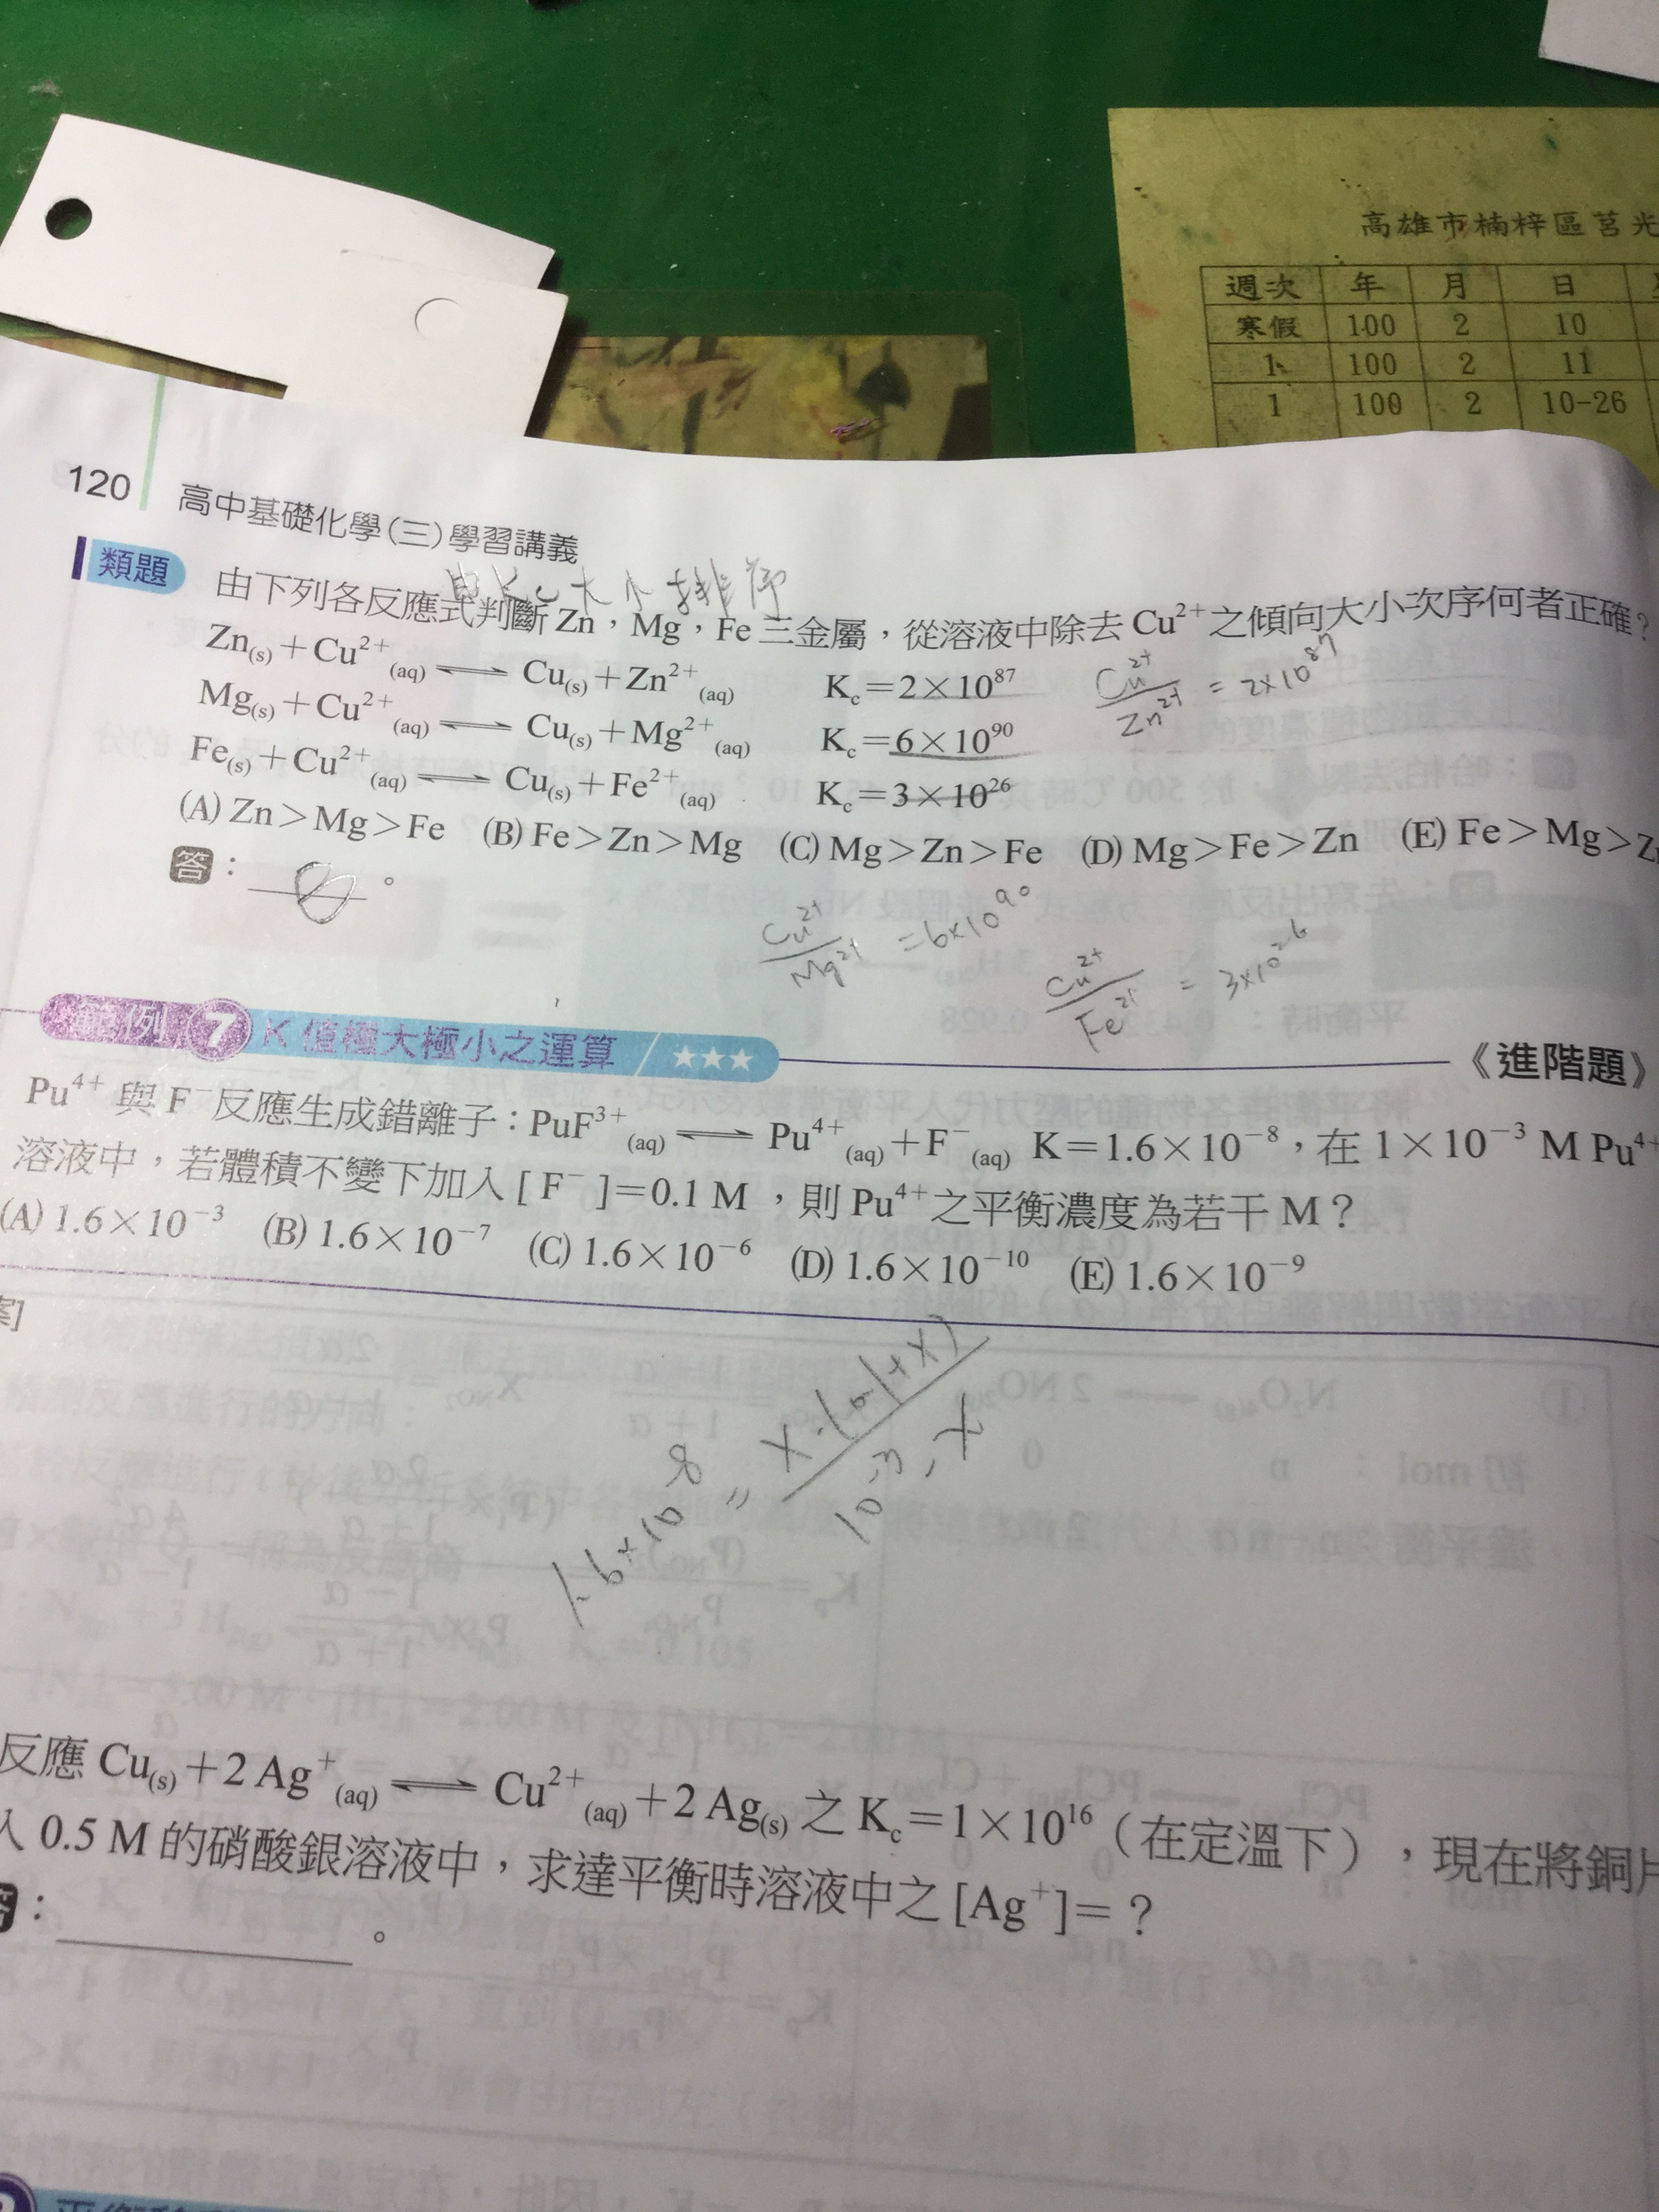 高雄市楠梓區莒光
週次 年 月 日
寒假 100 2 10
1 100 2 11
1 100 2 10-26
120
高中基礎化學(三)學習講義
由Kc大小排序
類題 由下列各反應式判斷 Zn,Mg,Fe 三金屬,從溶液中除去 Cu²⁺之傾向大小次序何者正確?
Zn(s)+Cu²⁺(aq) ⇌ Cu(s)+Zn²⁺(aq) Kc=2×10⁸⁷
Cu²⁺/Zn²⁺ = 2×10⁸⁷
Mg(s)+Cu²⁺(aq) ⇌ Cu(s)+Mg²⁺(aq) Kc=6×10⁹⁰
Fe(s)+Cu²⁺(aq) ⇌ Cu(s)+Fe²⁺(aq) Kc=3×10²⁶
(A) Zn>Mg>Fe (B) Fe>Zn>Mg (C) Mg>Zn>Fe (D) Mg>Fe>Zn (E) Fe>Mg>Zn
答:。
Cu²⁺/Mg²⁺ =6×10⁹⁰
Cu²⁺/Fe²⁺ = 3×10²⁶
範例 7 K 值極大極小之運算 ★★★
《進階題》
Pu⁴⁺ 與 F⁻ 反應生成錯離子:PuF³⁺(aq) ⇌ Pu⁴⁺(aq)+F⁻(aq) K=1.6×10⁻⁸,在 1×10⁻³ M Pu⁴⁺
溶液中,若體積不變下加入 [F⁻]=0.1 M,則 Pu⁴⁺之平衡濃度為若干 M?
(A) 1.6×10⁻³ (B) 1.6×10⁻⁷ (C) 1.6×10⁻⁶ (D) 1.6×10⁻¹⁰ (E) 1.6×10⁻⁹
案]
1.6×10⁻⁸ = X·(0.1+X)/10⁻³-X
反應 Cu(s)+2 Ag⁺(aq) ⇌ Cu²⁺(aq)+2 Ag(s) 之 Kc=1×10¹⁶(在定溫下),現在將銅片
入 0.5 M 的硝酸銀溶液中,求達平衡時溶液中之 [Ag⁺]=?
答:。